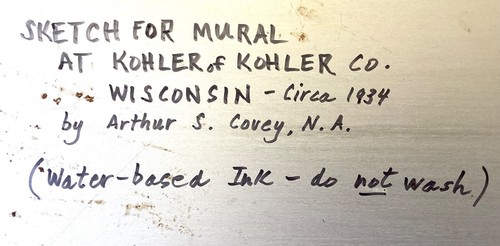 SKETCH FOR MURAL
AT KOHLER of KOHLER CO.
WISCONSIN - Circa 1934
by Arthur S. Covey, N.A.
(Water-based Ink - do not wash)